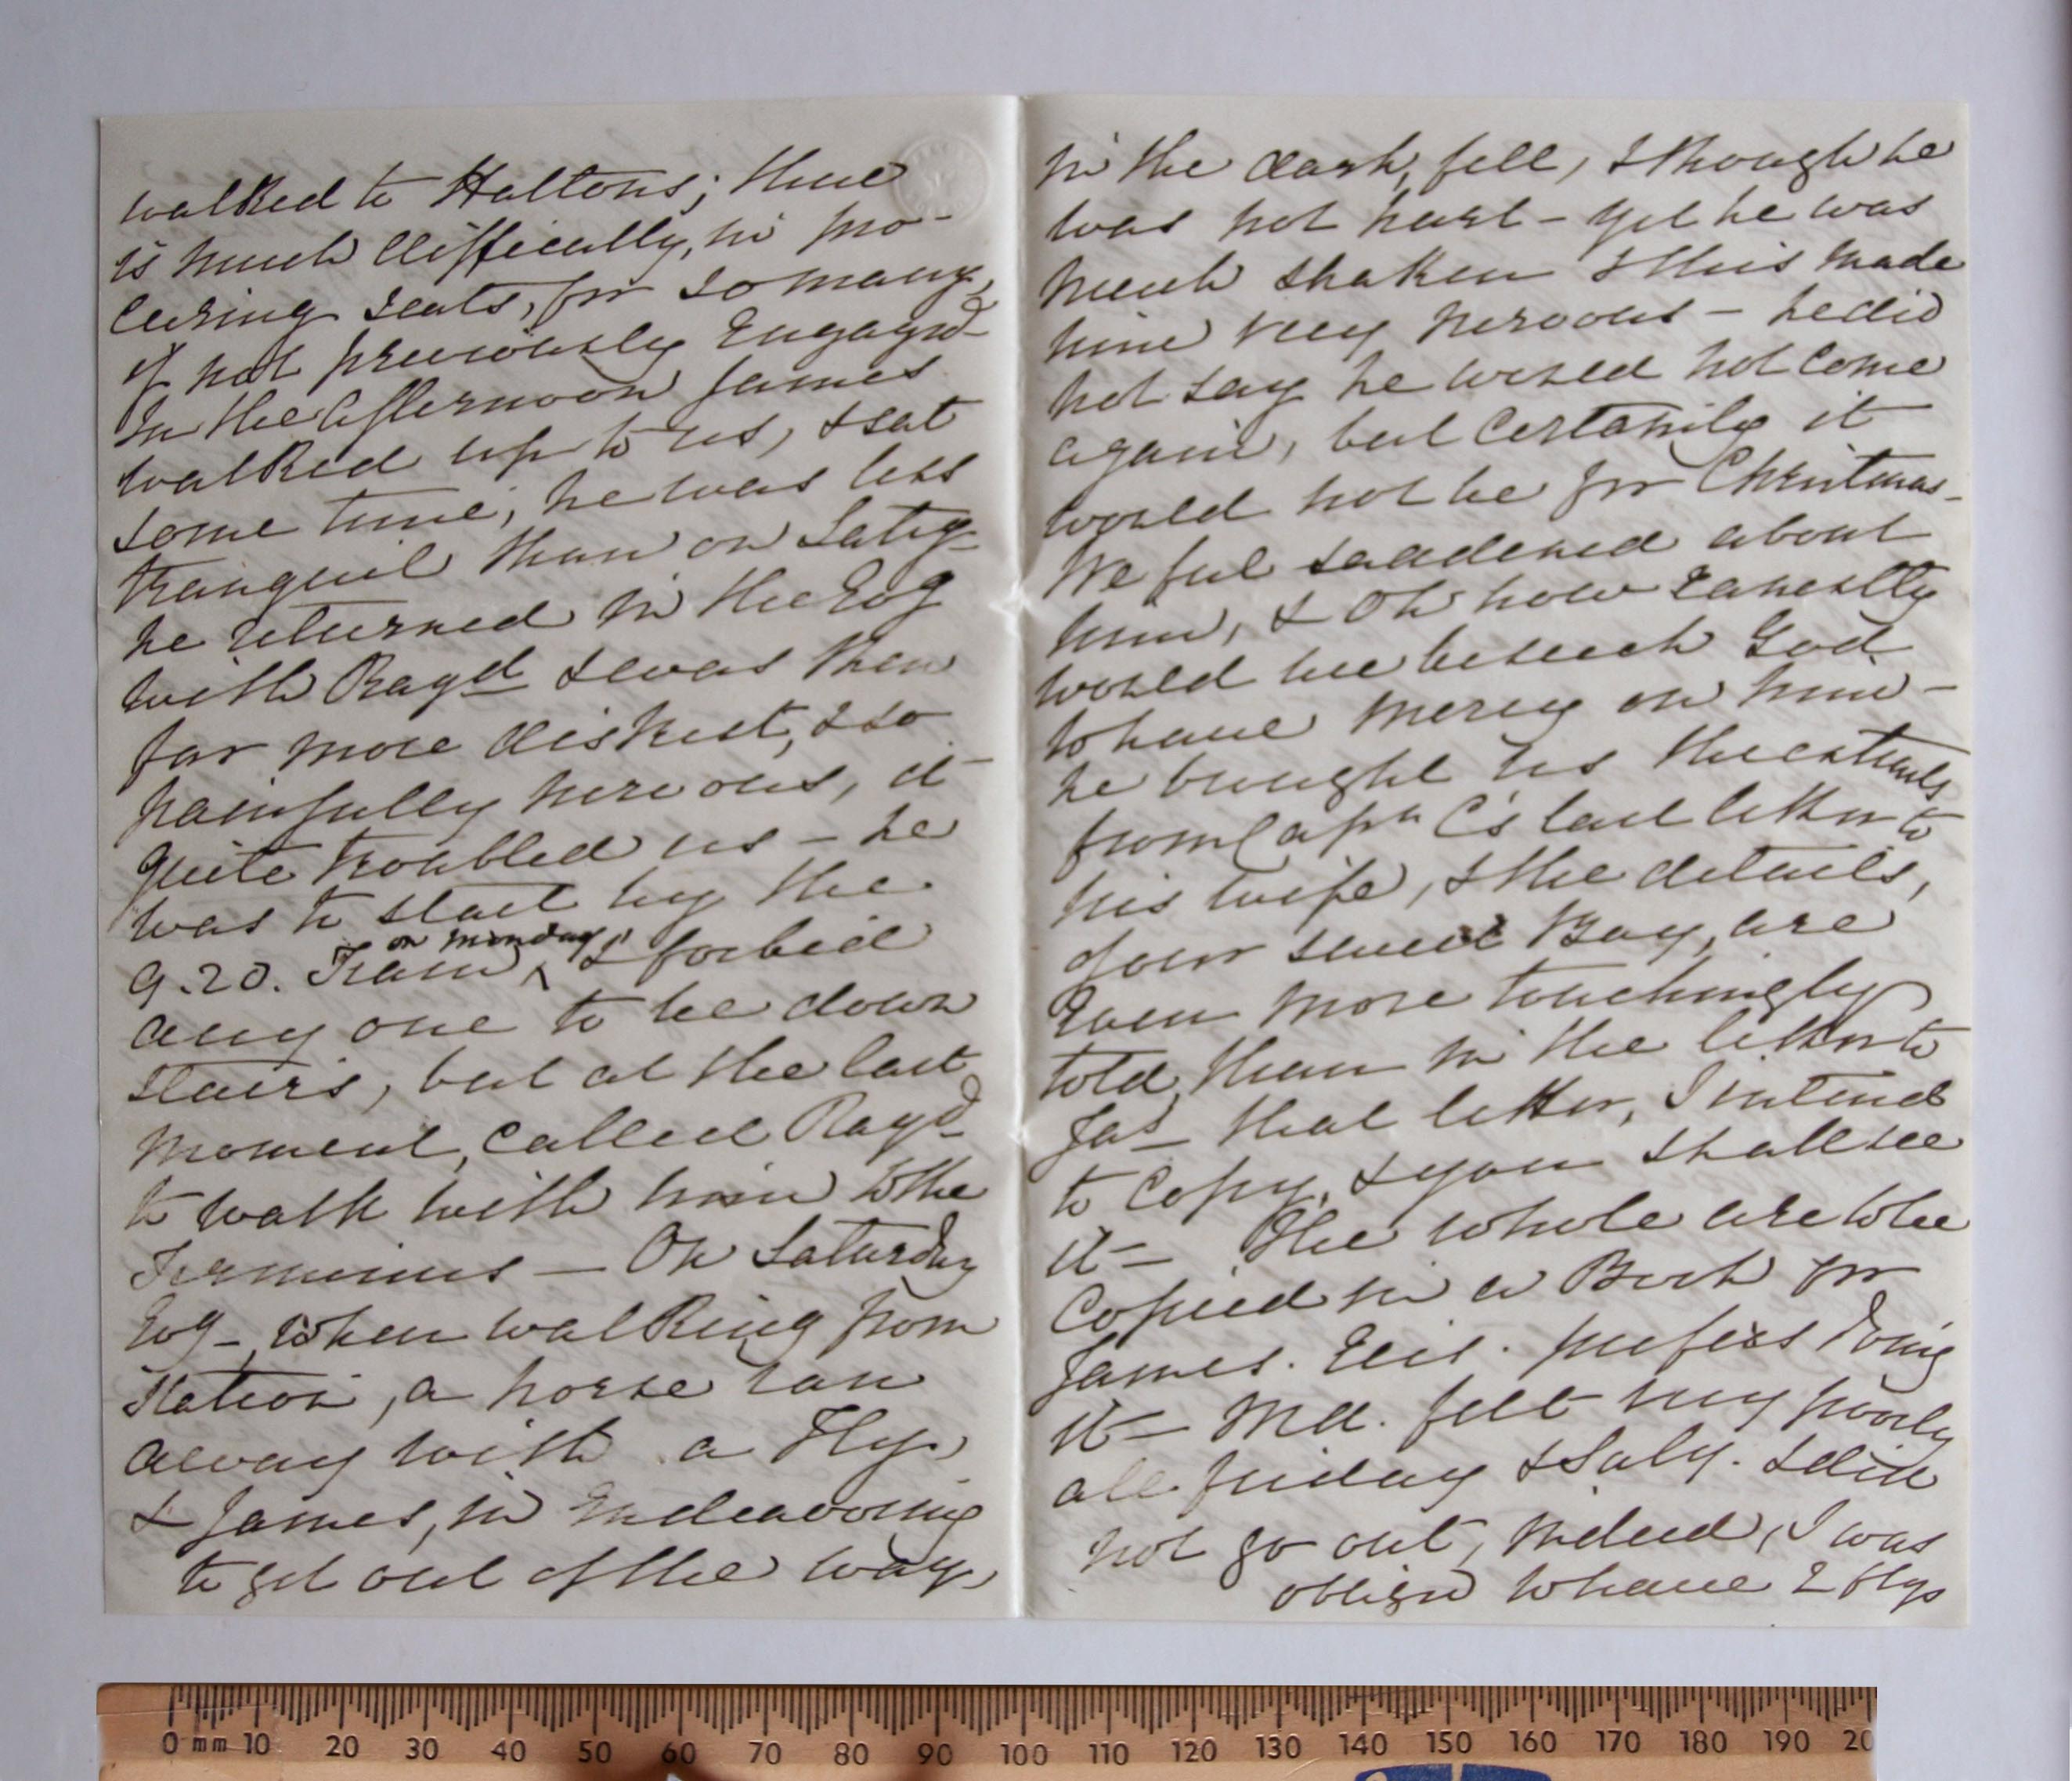 walked to Haltons; there
is much difficulty, in pro-
curing seats, for so many,
if not previously Engaged
In the afternoon James
walked up to us, & sat
some time, he was less
tranquil than on Saty-
he returned in the Evg
with Rayd & was then
far more distrest, & so
painfully nervous, it
quite troubled us - he
was to start by the
on Monday
9.20. Train, & forbid
any one to be down
stairs, but at the last
moment, called Rayd
to walk with him to the
Terminus - On Saturday
Evg - when walking from
Station, a horse ran
away with a Fly,
& James, in Endeavoring
to get out of the way,
in the dark, fell, & though he
was not hurt - yet he was
much shaken & this made
him very nervous - he did
not say he would not come
again, but certainly it
would not be for Christmas -
We feel saddened about
him, & Oh how Earnestly
would we beseech God
to have mercy on him -
he brought us the extracts
from Capn C's last letter to
his wife, & the details,
of our sweet Boy, are
Even more touchingly
told, than in the letter to
Jas - that letter, I intend
to copy, & you shall see
it - The whole are to be
Copied in a Book for
James. Eliz. prefers doing
it - Md. felt very poorly
all friday & Saty. & did
not go out, indeed, I was
obligd to have 2 flys
0 mm 10 20 30 40 50 60 70 80 90 100 110 120 130 140 150 160 170 180 190 20